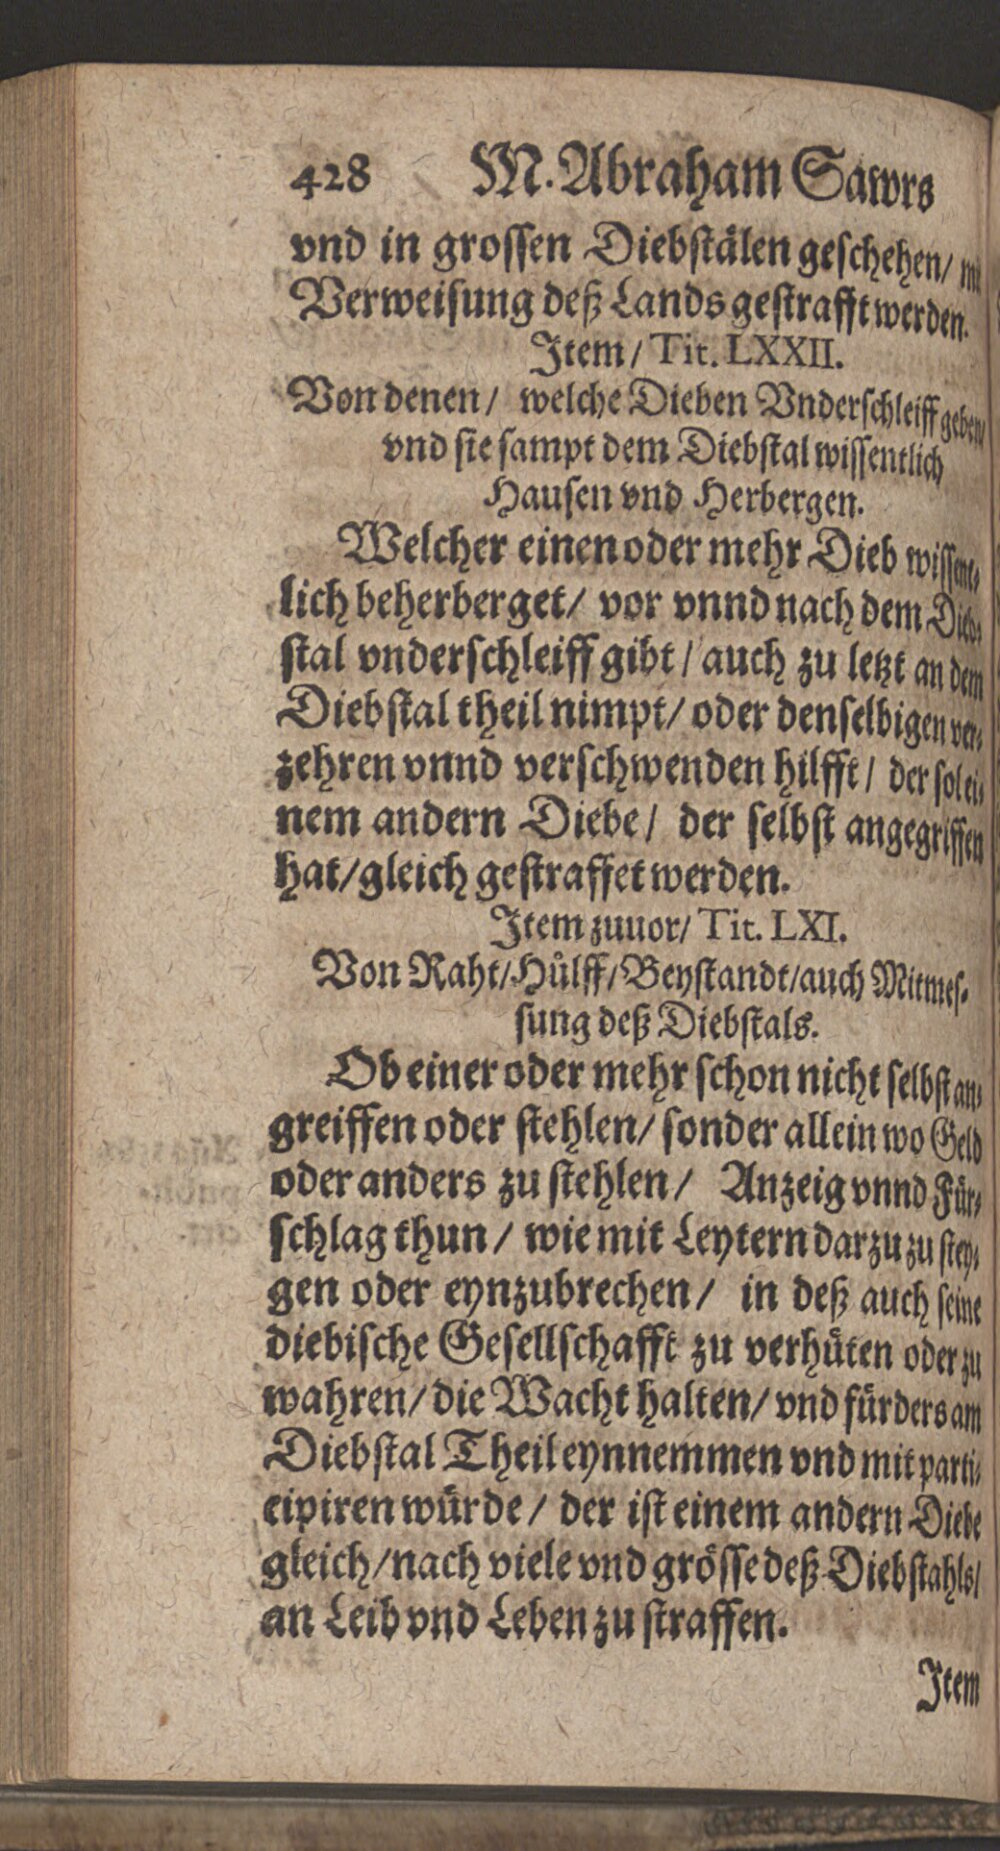 428 M. Abraham Sawrs
vnd in grossen Diebstälen geschehen/ mit
Verweisung deß Lands gestrafft werden.
Item/ Tit. LXXII.
Von denen/ welche Dieben Vnderschleiff geben/
vnd sie sampt dem Diebstal wissentlich
Hausen vnd Herbergen.
Welcher einen oder mehr Dieb wissent-
lich beherberget/ vor vnnd nach dem Dieb-
stal vnderschleiff gibt/ auch zu letzt an dem
Diebstal theil nimpt/ oder denselbigen ver-
zehren vnnd verschwenden hilfft/ der sol ei-
nem andern Diebe/ der selbst angegriffen
hat/ gleich gestraffet werden.
Item zuuor/ Tit. LXI.
Von Raht/ Hülff/ Beystandt/ auch Mitmes-
sung deß Diebstals.
Ob einer oder mehr schon nicht selbst an-
greiffen oder stehlen/ sonder allein wo Geld
oder anders zu stehlen/ Anzeig vnnd Für-
schlag thun/ wie mit Leytern darzu zu stey-
gen oder eynzubrechen/ in deß auch seine
diebische Gesellschafft zu verhüten oder zu
wahren/ die Wacht halten/ vnd fürders am
Diebstal Theil eynnemmen vnd mit parti-
cipiren würde/ der ist einem andern Diebe
gleich/ nach viele vnd grösse deß Diebstahls/
an Leib vnd Leben zu straffen.
Item